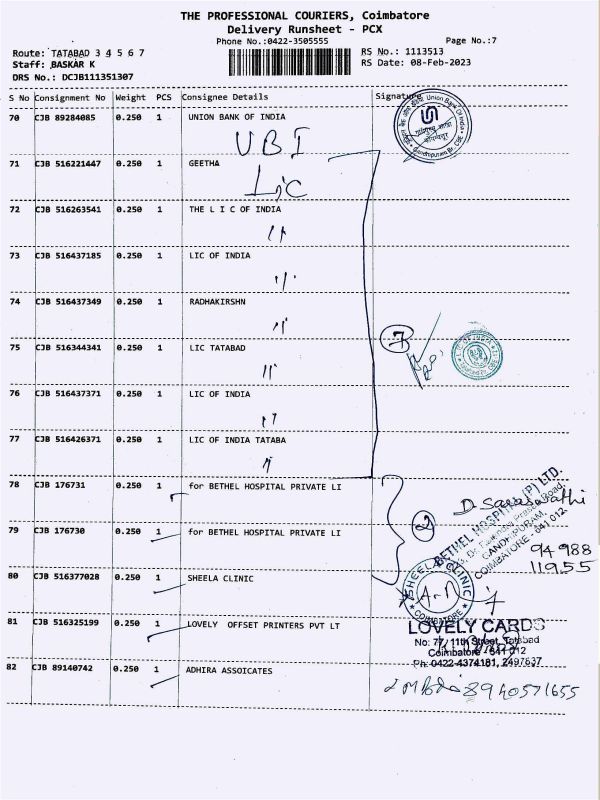 THE PROFESSIONAL COURIERS, Coimbatore
Delivery Runsheet - PCX
Phone No.:0422-3505555
Page No.:7
Route: TATABAD 3 4 5 6 7
RS No.: 1113513
Staff: BASKAR K
RS Date: 08-Feb-2023
DRS No.: DCJB111351307
S No Consignment No Weight PCS Consignee Details Signature
70 CJB 89284085 0.250 1 UNION BANK OF INDIA
UBI
71 CJB 516221447 0.250 1 GEETHA
LiC
72 CJB 516263541 0.250 1 THE L I C OF INDIA
73 CJB 516437185 0.250 1 LIC OF INDIA
74 CJB 516437349 0.250 1 RADHAKIRSHN
7
75 CJB 516344341 0.250 1 LIC TATABAD
76 CJB 516437371 0.250 1 LIC OF INDIA
77 CJB 516426371 0.250 1 LIC OF INDIA TATABA
78 CJB 176731 0.250 1 for BETHEL HOSPITAL PRIVATE LI
D. Saraswathi
BETHEL HOSPITAL (P) LTD.
GANDHIPURAM,
COIMBATORE - 641 012
2
79 CJB 176730 0.250 1 for BETHEL HOSPITAL PRIVATE LI
94988
11955
80 CJB 516377028 0.250 1 SHEELA CLINIC
SHEELA CLINIC
COIMBATORE
81 CJB 516325199 0.250 1 LOVELY OFFSET PRINTERS PVT LT
LOVELY CARDS
No: 77, 11th Street, Tatabad
Coimbatore - 641 012
Ph: 0422-4374181, 2497637
82 CJB 89140742 0.250 1 ADHIRA ASSOICATES
8940571655